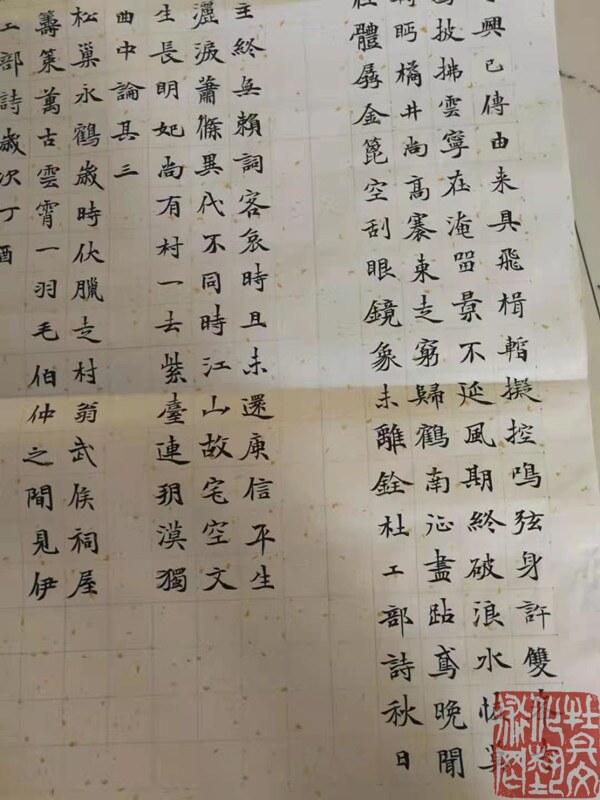 興已傳由来具飛楫暫擬控鳴弦身許雙
披拂雲寧在淹留景不延風期終破浪水怪
眄橘井尚高褰東走窮歸鶴南征盡跕鳶晚聞
體孱金篦空刮眼鏡象未離銓杜工部詩秋日
主終無賴詞客哀時且未還庾信平生
灑淚蕭條異代不同時江山故宅空文
生長明妃尚有村一去紫臺連朔漠獨
曲中論其三
松巢永鶴歲時伏臘走村翁武侯祠屋
籌策萬古雲霄一羽毛伯仲之間見伊
工部詩歲次丁酉